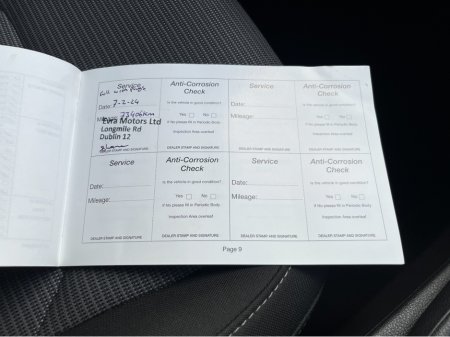 Service
Full
Date: 7-2-24
Mileage:
Motors Ltd
Longmile Rd
Dublin 12
DEALER STAMP AND SIGNATURE
Anti-Corrosion
Check
Is the vehicle in good condition?
Yes No
If No please fill in Periodic Body
Inspection Area overleaf
DEALER STAMP AND SIGNATURE
Service
Date:
Mileage:
DEALER STAMP AND SIGNATURE
Anti-Corrosion
Check
Is the vehicle in good condition?
Yes No
If No please fill in Periodic Body
Inspection Area overleaf
DEALER STAMP AND SIGNATURE
Service
Date:
Mileage:
DEALER STAMP AND SIGNATURE
Anti-Corrosion
Check
Is the vehicle in good condition?
Yes No
If No please fill in Periodic Body
Inspection Area overleaf
DEALER STAMP AND SIGNATURE
Service
Date:
Mileage:
DEALER STAMP AND SIGNATURE
Anti-Corrosion
Check
Is the vehicle in good condition?
Yes No
If No please fill in Periodic Body
Inspection Area overleaf
DEALER STAMP AND SIGNATURE
Page 9